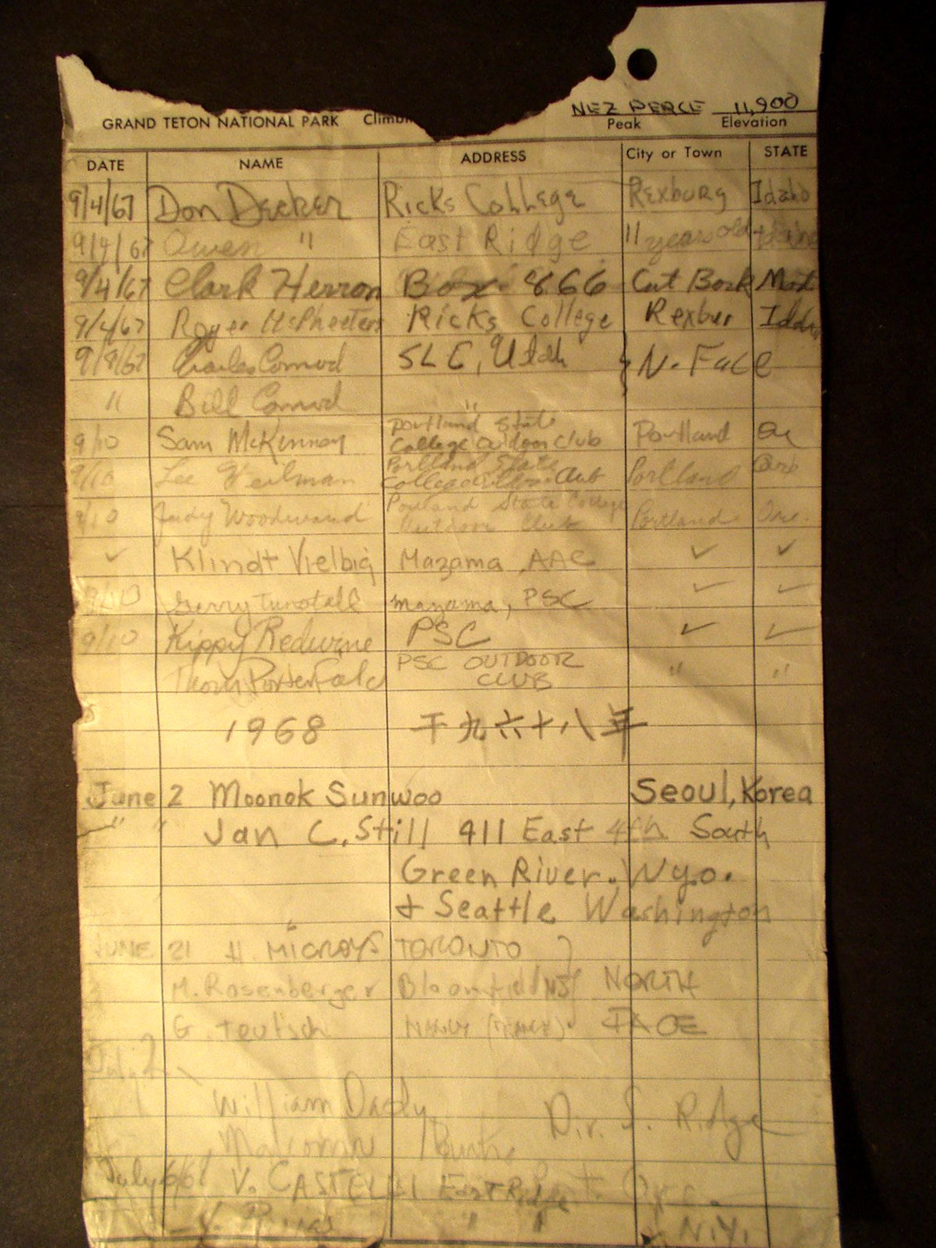 NEZ PERCE 11,900
GRAND TETON NATIONAL PARK Peak Elevation
DATE NAME ADDRESS City or Town STATE
9/4/67 Don Decker Ricks College Rexburg Idaho
9/4/67 Owen " East Ridge 11 years old Idaho
9/4/67 Clark Herron Box 866 Cut Bank Mont
9/4/67 Roger McPheeters Ricks College Rexbur Idaho
9/8/67 Charles Conrod SLC, Utah } N. Face
" Bill Conrod "
9/10 Sam McKinney Portland State College Outdoor Club Portland Ore
9/10 Lee Portland State College Outdoor Club Portland Ore
9/10 Judy Woodward Portland State College Outdoor Club Portland Ore.
✓ Klindt Vielbig Mazama, AAC ✓ ✓
9/10 Gerry Tunstall Mazama, PSC ✓ ✓
9/10 Kippy Redwine PSC ✓ ✓
Thom Porterfield PSC OUTDOOR CLUB " "
1968 千九六十八年
June 2 Moonok Sunwoo Seoul, Korea
" " Jan C. Still 911 East 4th South
Green River. Wyo.
& Seattle Washington
JUNE 21 H. MICROYS TORONTO }
M. Rosenberger Bloomfield NJ NORTH
G. Teutsch FACE
July 2
William Dady Dir. S. Ridge
Malcomn
July 6/68 V. CASTELLI East Ridge
" " N.Y.